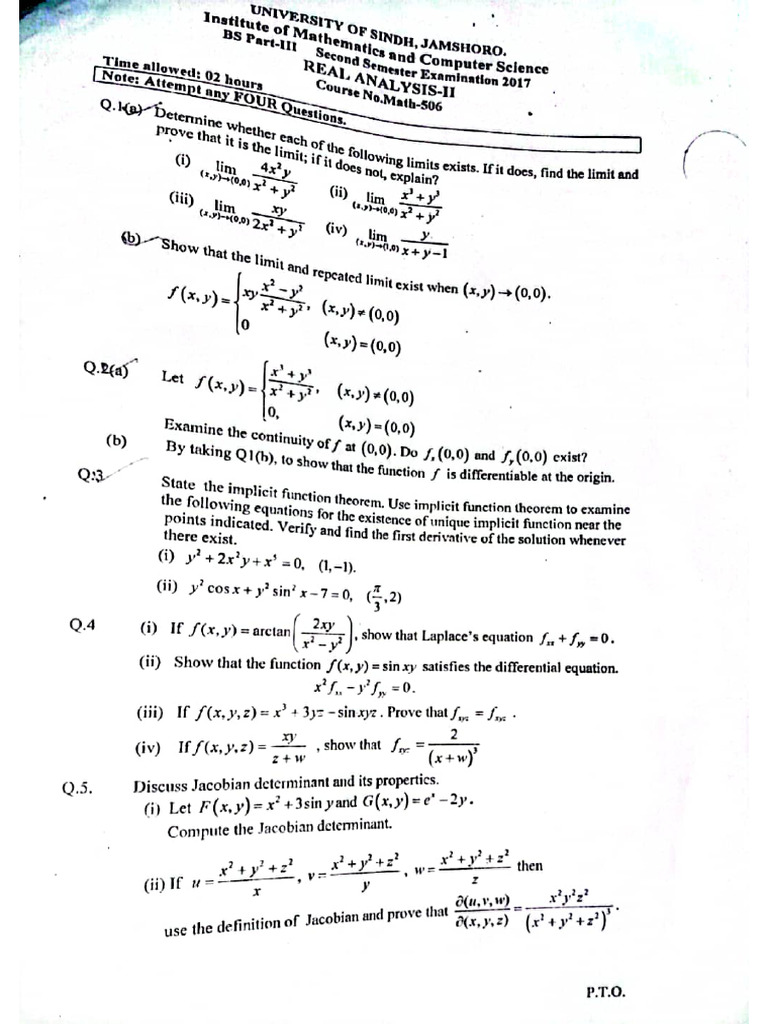 UNIVERSITY OF SINDH, JAMSHORO.
Institute of Mathematics and Computer Science
BS Part-III Second Semester Examination 2017
REAL ANALYSIS-II
Time allowed: 02 hours Course No.Math-506
Note: Attempt any FOUR Questions.
Q.1(a) Determine whether each of the following limits exists. If it does, find the limit and
prove that it is the limit; if it does not, explain?
(i) lim (x,y)→(0,0) 4x²y / x² + y² (ii) lim (x,y)→(0,0) x³ + y³ / x² + y²
(iii) lim (x,y)→(0,0) xy / 2x² + y² (iv) lim (x,y)→(1,0) y / x + y − 1
(b) Show that the limit and repeated limit exist when (x, y) → (0,0).
f(x, y) = { xy x² − y² / x² + y², (x, y) ≠ (0,0)
0 (x, y) = (0,0)
Q.2(a) Let f(x, y) = { x³ + y³ / x² + y², (x, y) ≠ (0,0)
0, (x, y) = (0,0)
Examine the continuity of f at (0,0). Do fₓ(0,0) and fᵧ(0,0) exist?
(b) By taking Q1(b), to show that the function f is differentiable at the origin.
Q:3 State the implicit function theorem. Use implicit function theorem to examine
the following equations for the existence of unique implicit function near the
points indicated. Verify and find the first derivative of the solution whenever
there exist.
(i) y² + 2x²y + x⁵ = 0, (1,−1).
(ii) y² cos x + y² sin² x − 7 = 0, (π/3, 2)
Q.4 (i) If f(x, y) = arctan(2xy / x² − y²), show that Laplace's equation f_xx + f_yy = 0.
(ii) Show that the function f(x, y) = sin xy satisfies the differential equation.
x² f_xx − y² f_yy = 0.
(iii) If f(x, y, z) = x³ + 3yz − sin xyz. Prove that f_xyz = f_xyz.
(iv) If f(x, y, z) = xy / z + w, show that = 2 / (x + w)³
Q.5. Discuss Jacobian determinant and its properties.
(i) Let F(x, y) = x² + 3sin y and G(x, y) = eˣ − 2y.
Compute the Jacobian determinant.
(ii) If u = x² + y² + z² / x, v = x² + y² + z² / y, w = x² + y² + z² / z then
use the definition of Jacobian and prove that ∂(u, v, w) / ∂(x, y, z) = x²y²z² / (x² + y² + z²)³.
P.T.O.